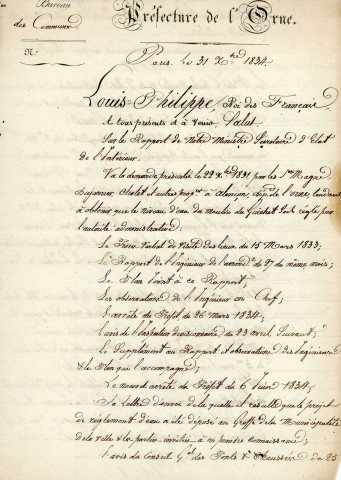 Bureau
des Communes
Préfecture de l'Orne.
N.o
Paris, le 31 Xbre 1834.
Louis-Philippe, Roi des Français
A tous présents et à venir, Salut.
Sur le Rapport de notre Ministre Secrétaire d'Etat
de l'Intérieur.
Vu la demande présentée le 22 Xbre 1831, par les Srs
Chalet et autres propres à Alençon, dépt de l'orne, tendante
à obtenir que le niveau d'eau du moulin du Guichet soit réglé par
l'autorité administrative;
Le Procès Verbal de visite des lieux du 15 Mars 1833;
Le Rapport de l'Ingénieur de l'arrondt du 27 du même mois;
Le Plan joint à ce Rapport;
Les observations de l'Ingénieur en Chef;
L'arrêté du Préfet du 26 mars 1834;
L'avis de l'Inspecteur divisionnaire du 23 avril suivant;
Le Supplément au Rapport et observations des Ingénieurs
& le Plan qui l'accompagne;
Le nouvel arrêté du Préfet du 6 Juin 1834;
Sa Lettre d'envoi de laquelle il résulte que le projet
de règlement d'eau a été déposé au Greffe de la Municipalité
de la ville & les parties invitées à en prendre connaissance;
L'avis du Conseil Gal des Ponts & Chaussées du 23